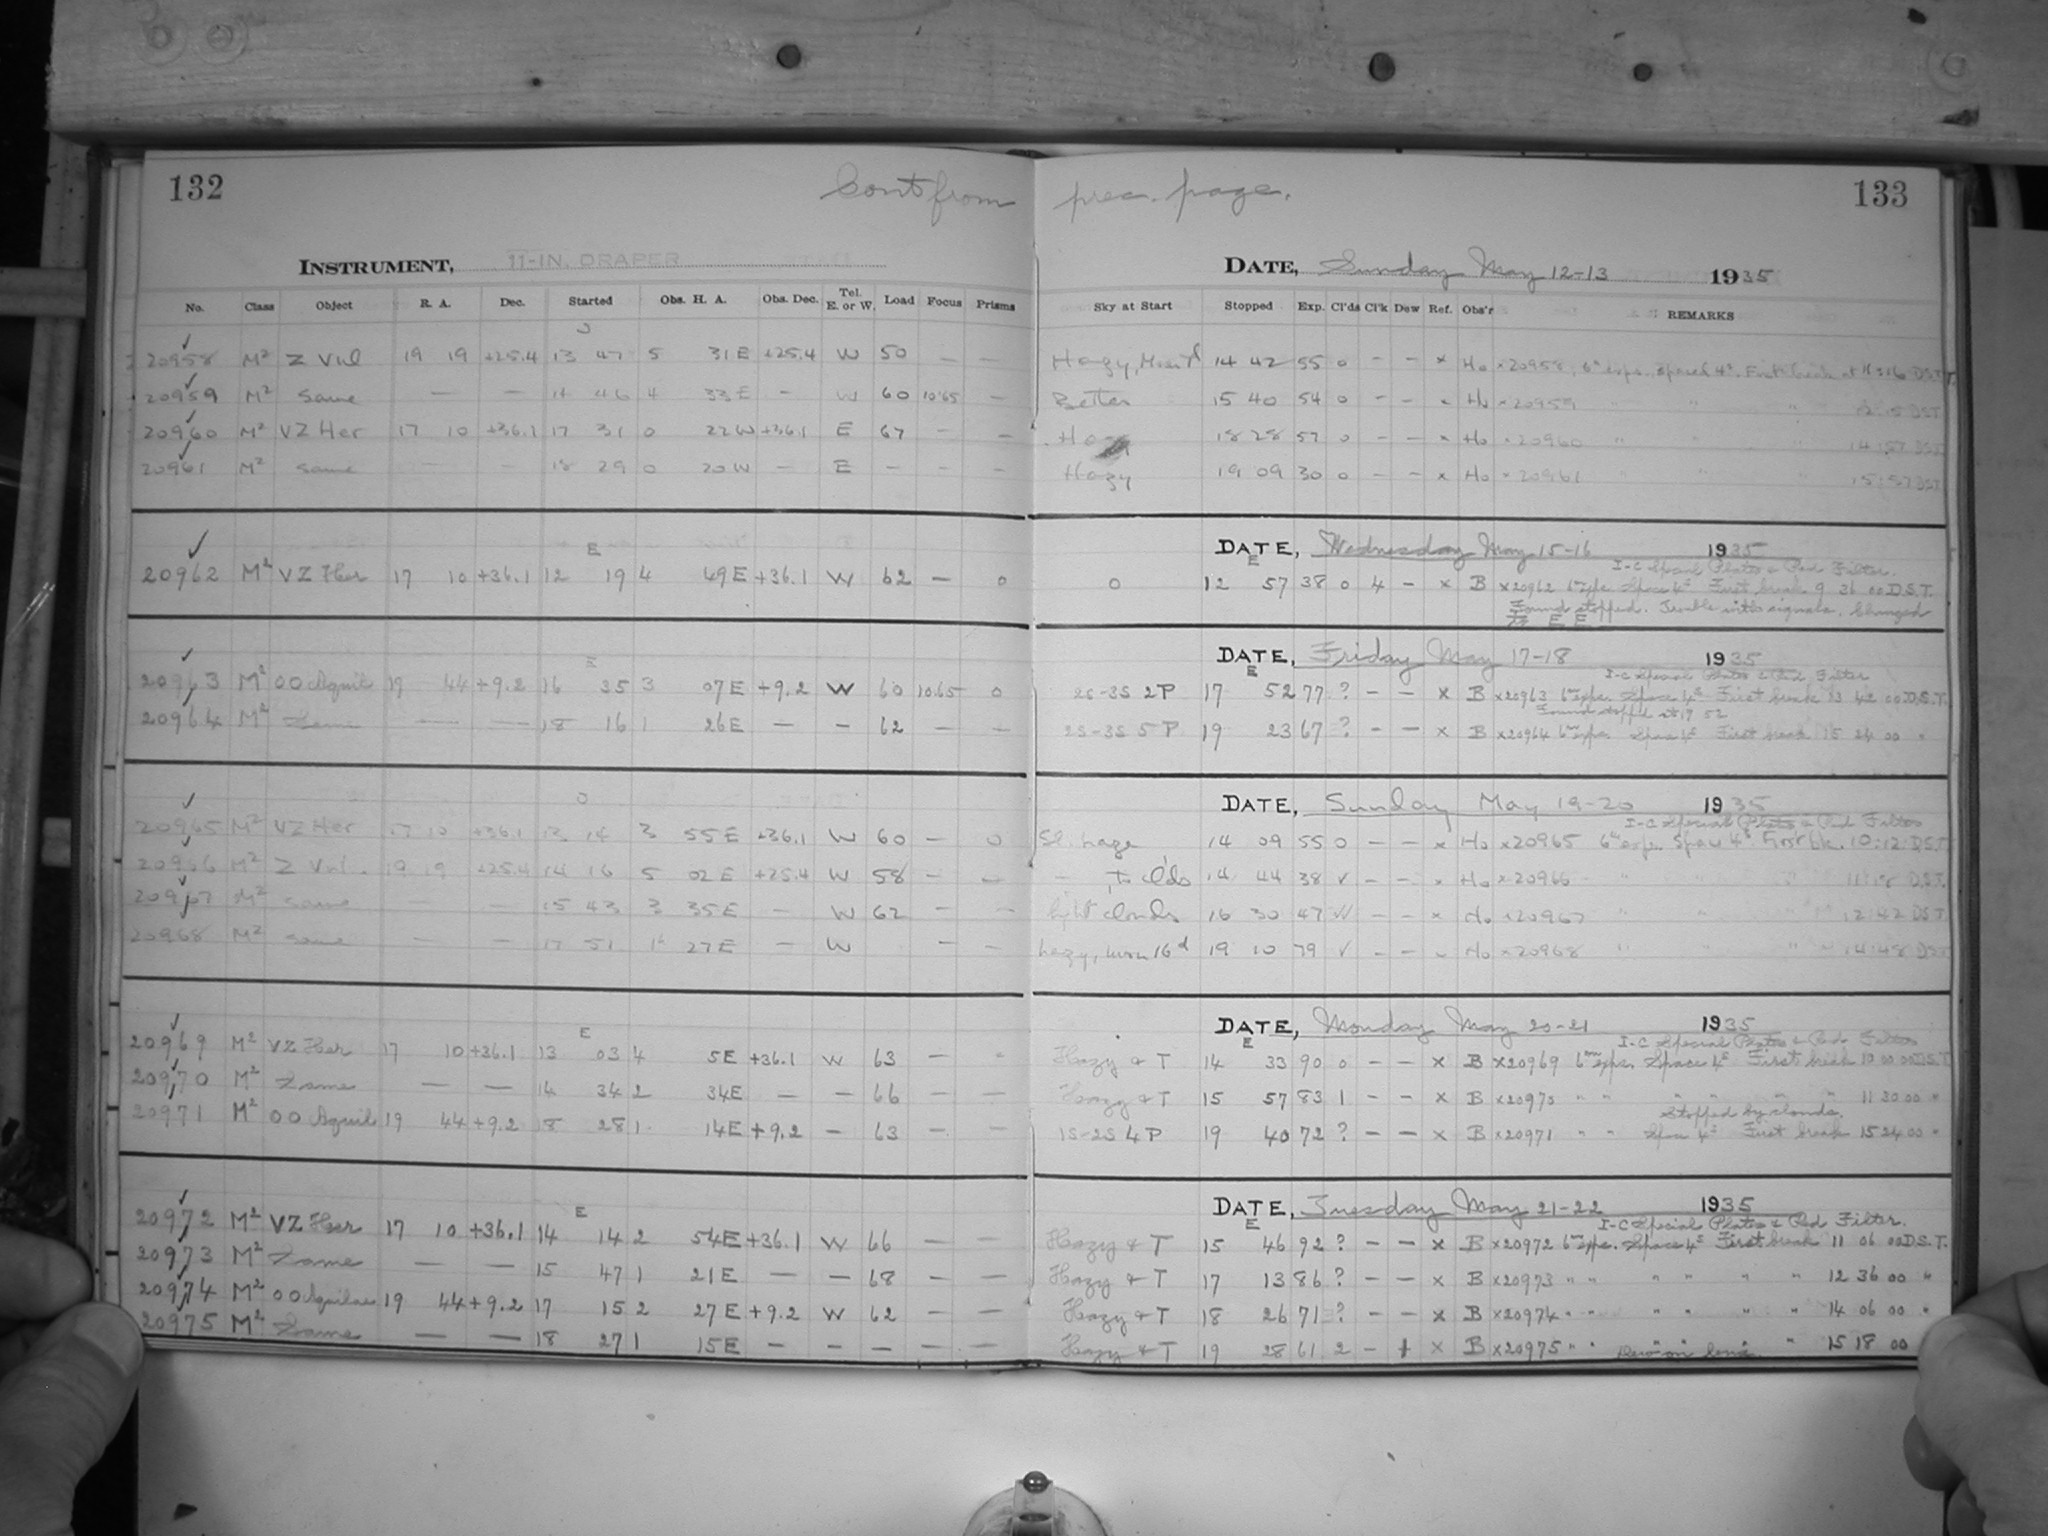 132 Cont from prec. page. 133
INSTRUMENT, 11-IN. DRAPER DATE, Sunday May 12-13 1935
No. Class Object R. A. Dec. Started Obs. H. A. Obs. Dec. Tel. E. or W. Load Focus Prisms Sky at Start Stopped Exp. Cl'ds Cl'k Dew Ref. Obs'r REMARKS
20958 M² Z Vul 19 19 +25.4 13 47 5 31E +25.4 W 50 — — Hazy, 14 42 55 0 - - x Ho x20958, 6m exps. spaced 4s. First break at
20959 M² Same — — 14 46 4 33E — W 60 10.65 — Better 15 40 54 0 - - x Ho x20959 " " " D.S.T.
20960 M² VZ Her 17 10 +36.1 17 31 0 22W +36.1 E 67 — — 18 28 57 0 - - x Ho x20960 " " " 14:57 DST
20961 M² Same — — 18 29 0 20W — E — — — Hazy 19 09 30 0 - - x Ho x20961 " " " 15:57 DST
DATE, Wednesday May 15-16 1935
E E I-C Special Plates & Red Filter.
20962 M² VZ Her 17 10 +36.1 12 19 4 49E +36.1 W 62 — 0 0 12 57 38 0 4 — x B x20962 6m exps. Space 4s First break 9 26 00 D.S.T.
Found stopped. Trouble with signals. Changed
to E E
DATE, Friday May 17-18 1935
E E I-C Special Plates & Red Filter
20963 M² OO Aquil 19 44 +9.2 16 35 3 07E +9.2 W 60 10.65 0 2S-3S 2P 17 52 77 ? — — x B x20963 6m exps. Space 4s First break 13 42 00 D.S.T.
Found stopped at 17 52
20964 M² Same — — 18 16 1 26E — — 62 — — 2S-3S 5P 19 23 67 ? — — x B x20964 6m exps. Space 4s First break 15 24 00 "
DATE, Sunday May 19-20 1935
I-C Special Plates & Red Filter
20965 M² VZ Her 17 10 +36.1 13 14 3 55E +36.1 W 60 — 0 Sl. haze 14 09 55 0 — — x Ho x20965 6m exps. Space 4s. First bk. 10:12 D.S.T.
20966 M² Z Vul. 19 19 +25.4 14 16 5 02E +25.4 W 58 — — — , to clds 14 44 38 v — — x Ho x20966 " " " D.S.T.
20967 M² Same — — 15 43 3 35E — W 62 — — light clouds 16 30 47 — — x Ho x20967 " " " 12:42 DST
20968 M² Same — — 17 51 1 27E — W — — hazy, moon 16d 19 10 79 v — — Ho x20968 " " " 14:48 DST
DATE, Monday May 20-21 1935
E E I-C Special Plates & Red Filter
20969 M² VZ Her 17 10 +36.1 13 03 4 5E +36.1 W 63 — - Hazy & T 14 33 90 0 — — x B x20969 6m exps. Space 4s First break 10 00 00 D.S.T.
20970 M² Same — — 14 34 2 34E — — 66 — — Hazy & T 15 57 83 1 — — x B x20970 " " " " " " 11 30 00 "
Stopped by clouds.
20971 M² OO Aquil 19 44 +9.2 18 28 1 14E +9.2 — 63 — — 1S-2S 4P 19 40 72 ? — — x B x20971 " " Space 4s First break 15 24 00 "
DATE, Tuesday May 21-22 1935
E E I-C Special Plates & Red Filter.
20972 M² VZ Her 17 10 +36.1 14 14 2 54E +36.1 W 66 — — Hazy & T 15 46 92 ? — — x B x20972 6m exps. Space 4s First break 11 06 00 D.S.T.
20973 M² Same — — 15 47 1 21E — — 68 — — Hazy & T 17 13 86 ? — — x B x20973 " " " " " " 12 36 00 "
20974 M² OO Aquilae 19 44 +9.2 17 15 2 27E +9.2 W 62 — — Hazy & T 18 26 71 ? — — x B x20974 " " " " " " 14 06 00 "
20975 M² Same — — 18 27 1 15E — — — — — Hazy & T 19 28 61 2 — + x B x20975 " " " " " " 15 18 00
Dew on lens.